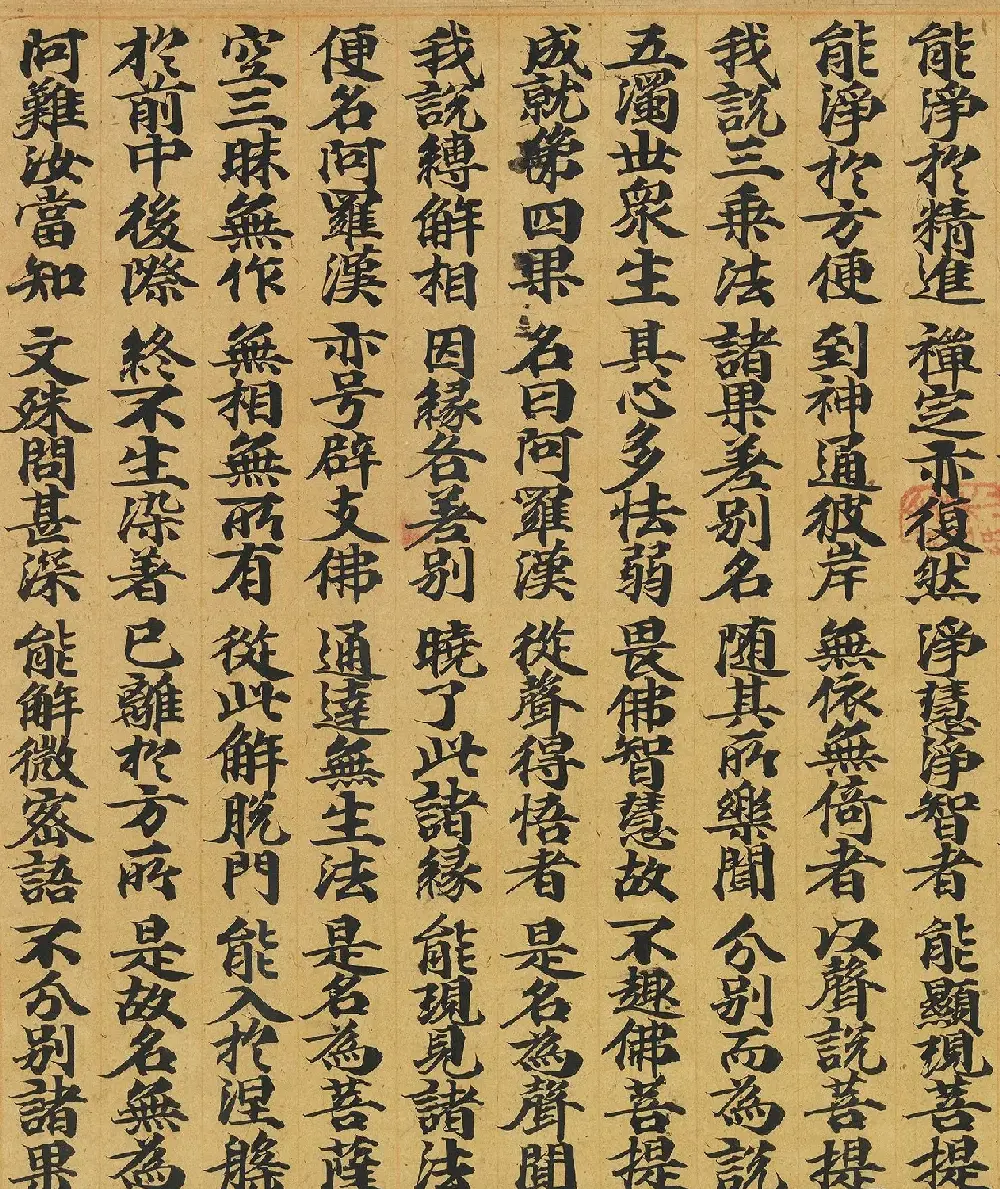 能淨於精進 禪定亦復然 淨慧淨智者 能顯現菩提
能淨於方便 到神通彼岸 無依無倚者 以聲說菩提
我說三乘法 諸果善別名 随其所樂聞 分別而為說
五濁世眾生 其心多怯弱 畏佛智慧故 不趣佛菩提
成就第四果 名曰阿羅漢 從聲得悟者 是名為聲聞
我說縛解相 因緣各善別 曉了此諸緣 能現見諸法
便名阿羅漢 亦号辟支佛 通達無生法 是名為菩薩
空三昧無作 無相無所有 從此解脱門 能入於涅槃
於前中後際 終不生染著 已離於方所 是故名無為
阿難汝當知 文殊問甚深 能解微密語 不分別諸果